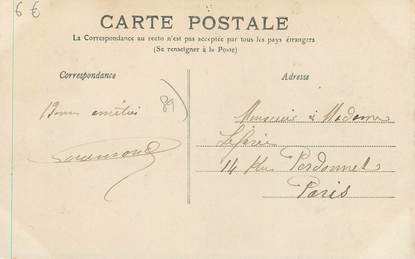 6 €
CARTE POSTALE
La Correspondance au recto n'est pas acceptée par tous les pays étrangers
(Se renseigner à la Poste)
Correspondance
Adresse
Bonnes amitiés
89
Monsieur & Madame
14 Rue Perdonnet
Paris